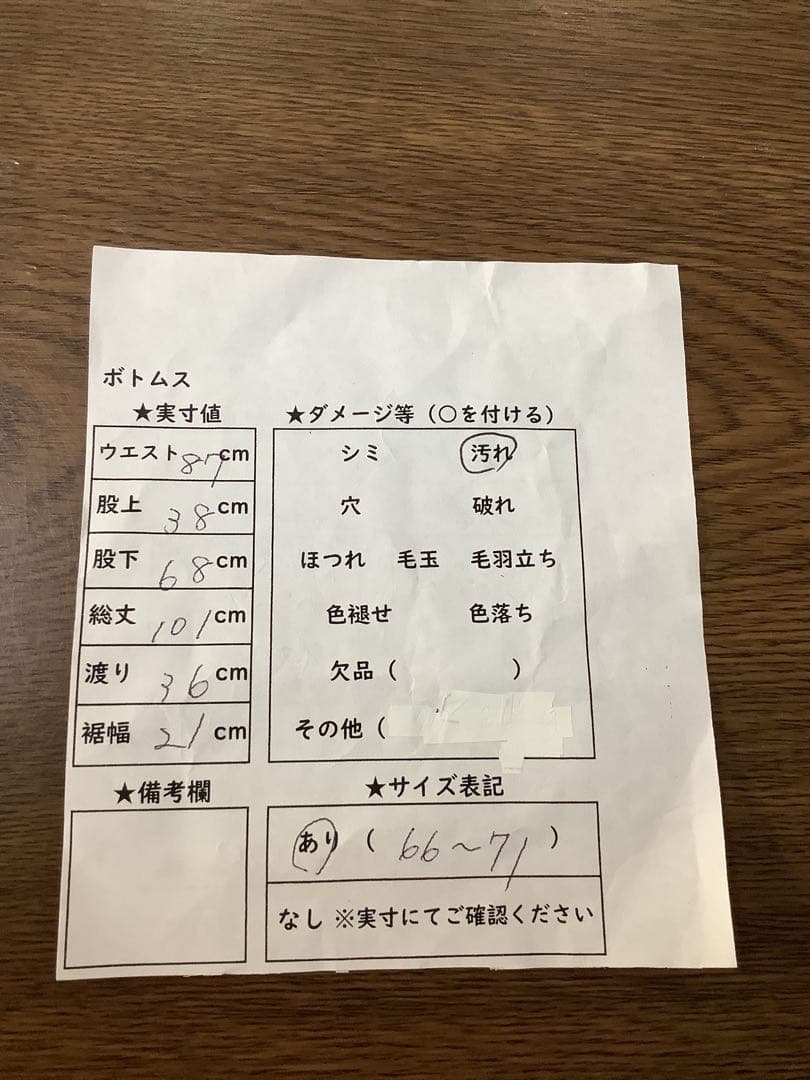 ボトムス
★実寸値
ウエスト 87cm
股上 38cm
股下 68cm
総丈 101cm
渡り 36cm
裾幅 21cm
★ダメージ等（○を付ける）
シミ 汚れ
穴 破れ
ほつれ 毛玉 毛羽立ち
色褪せ 色落ち
欠品（ ）
その他（
★備考欄
★サイズ表記
あり（ 66〜71 ）
なし ※実寸にてご確認ください